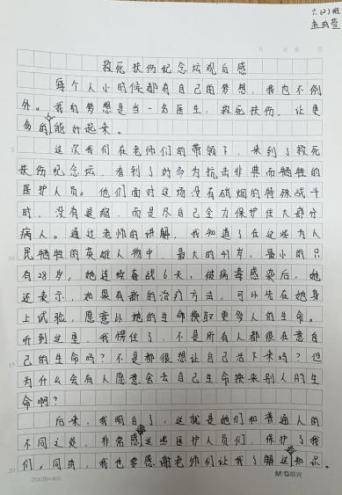 六(2)班
救死扶伤纪念坛观后感
每个人小的时候都有自己的梦想，我也不例
外。我的梦想是当一名医生，救死扶伤，让更
多的能好起来。
这次我们在老师们的带领下，来到了救死
扶伤纪念坛，看到了时为抗击非典而牺牲的
医护人员。他们面对这场没有硝烟的特殊战斗
时，没有退缩，而是尽自己全力保护住大部分
病人。通过老师的讲解，我知道了在这些为人
民牺牲的英雄人物中，最大的41岁，最小的只
有28岁，她连续奋战6天，被病毒感染后，她
还表示，如果有新的治疗方法，可以先在她身
上试验，愿意以她的生命换取更多人的生命。
听到这里，我愣住了，不是所有人都很在意自
己的生命吗？不是都很想让自己活下来吗？但
为什么会有人愿意舍去自己生命换来别人的生
命啊？
后来，我明白了，这就是她们和普通人的
不同之处。非常感这些医护人员们，保护了我
们，同时，我也要感谢老师们让我了解这知识。